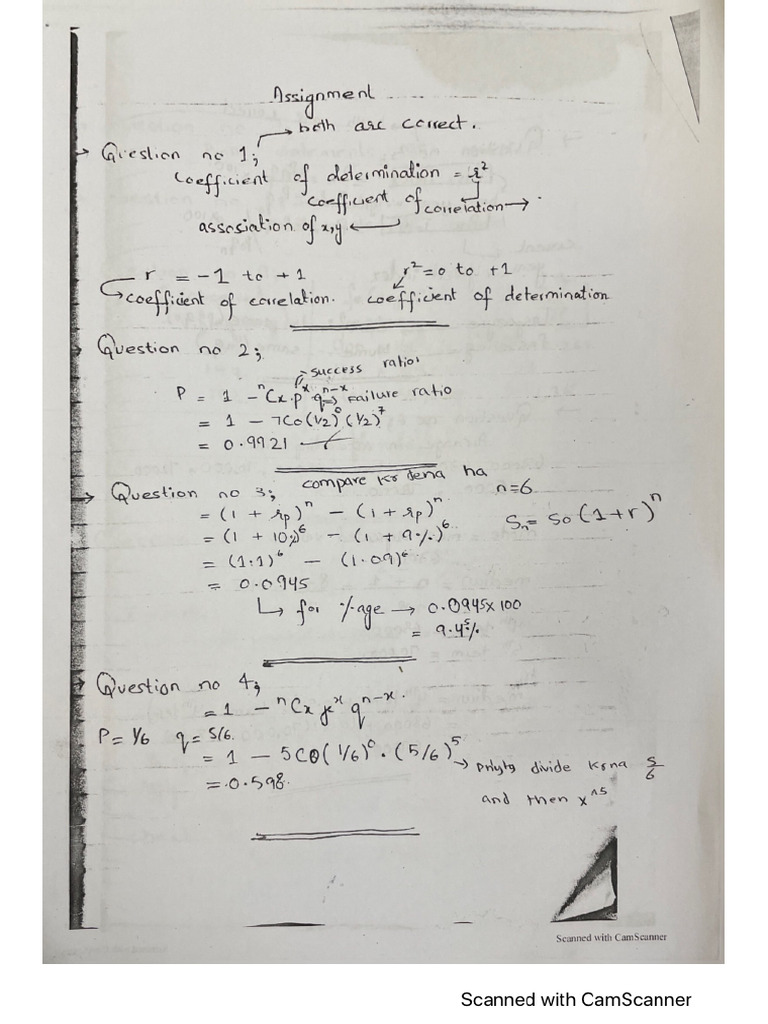 Assignment
both are correct.
Question no 1;
coefficient of determination = r²
coefficient of correlation →
association of x,y ←
r = -1 to +1
r² = 0 to +1
coefficient of correlation.
coefficient of determination
Question no 2;
success ratio
P = 1 - ⁿCx.pˣ.qⁿ⁻ˣ → Failure ratio
= 1 - 7C0(1/2)⁰(1/2)⁷
= 0.9921
Question no 3; compare kr dena ha
n=6
= (1 + rp)ⁿ - (1 + rp)ⁿ
Sn = So(1+r)ⁿ
= (1 + 10%)⁶ - (1 + 9%)⁶
= (1.1)⁶ - (1.09)⁶
= 0.0945
↳ for %age → 0.0945x100
= 9.45%
Question no 4;
= 1 - ⁿCx pˣ qⁿ⁻ˣ.
P = 1/6 q = 5/6.
= 1 - 5C0(1/6)⁰.(5/6)⁵
→ divide krna 5/6
= 0.598
and then x^5
Scanned with CamScanner
Scanned with CamScanner